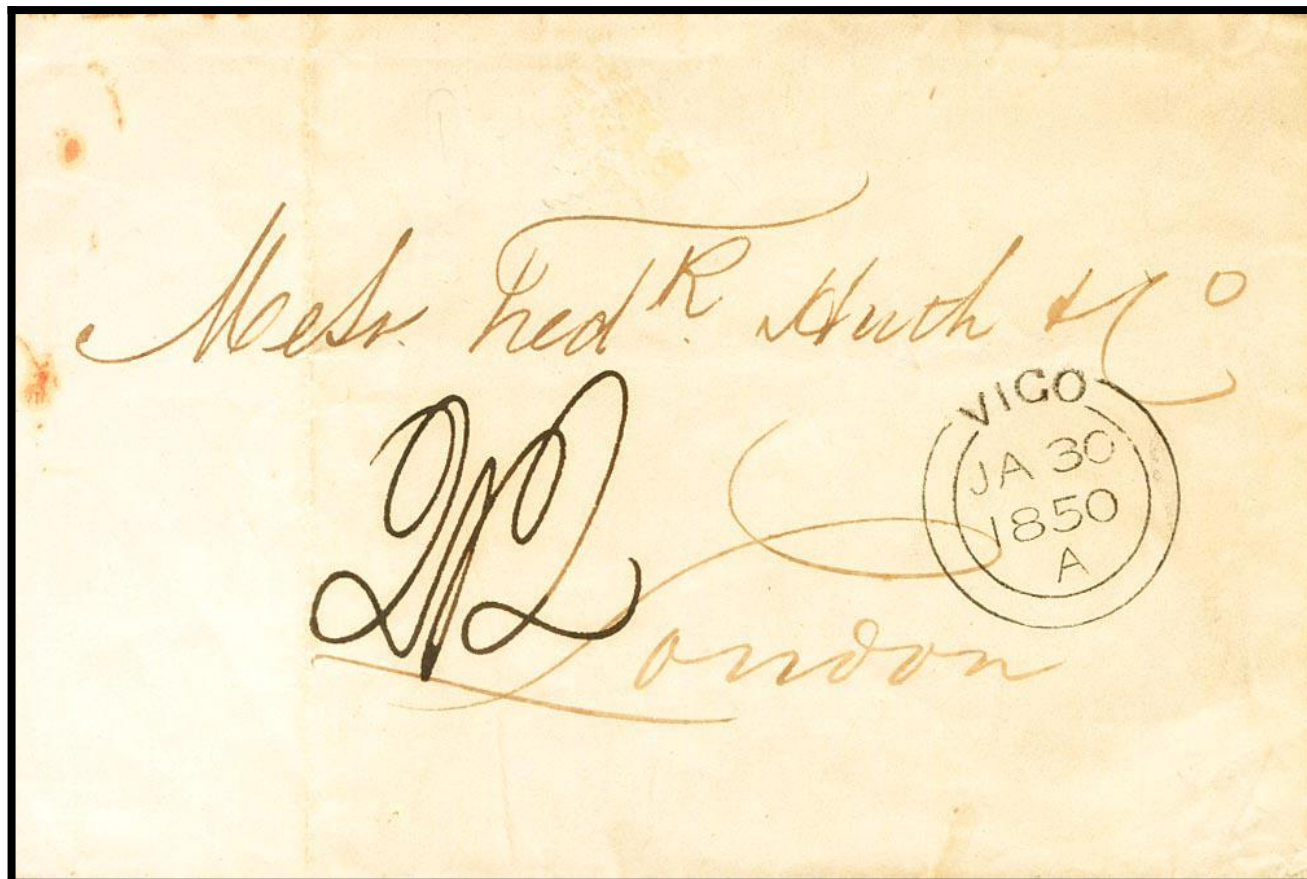 Messr. Fred.R Huth & Co
VIGO
JA 30
1850
A
2/2
London